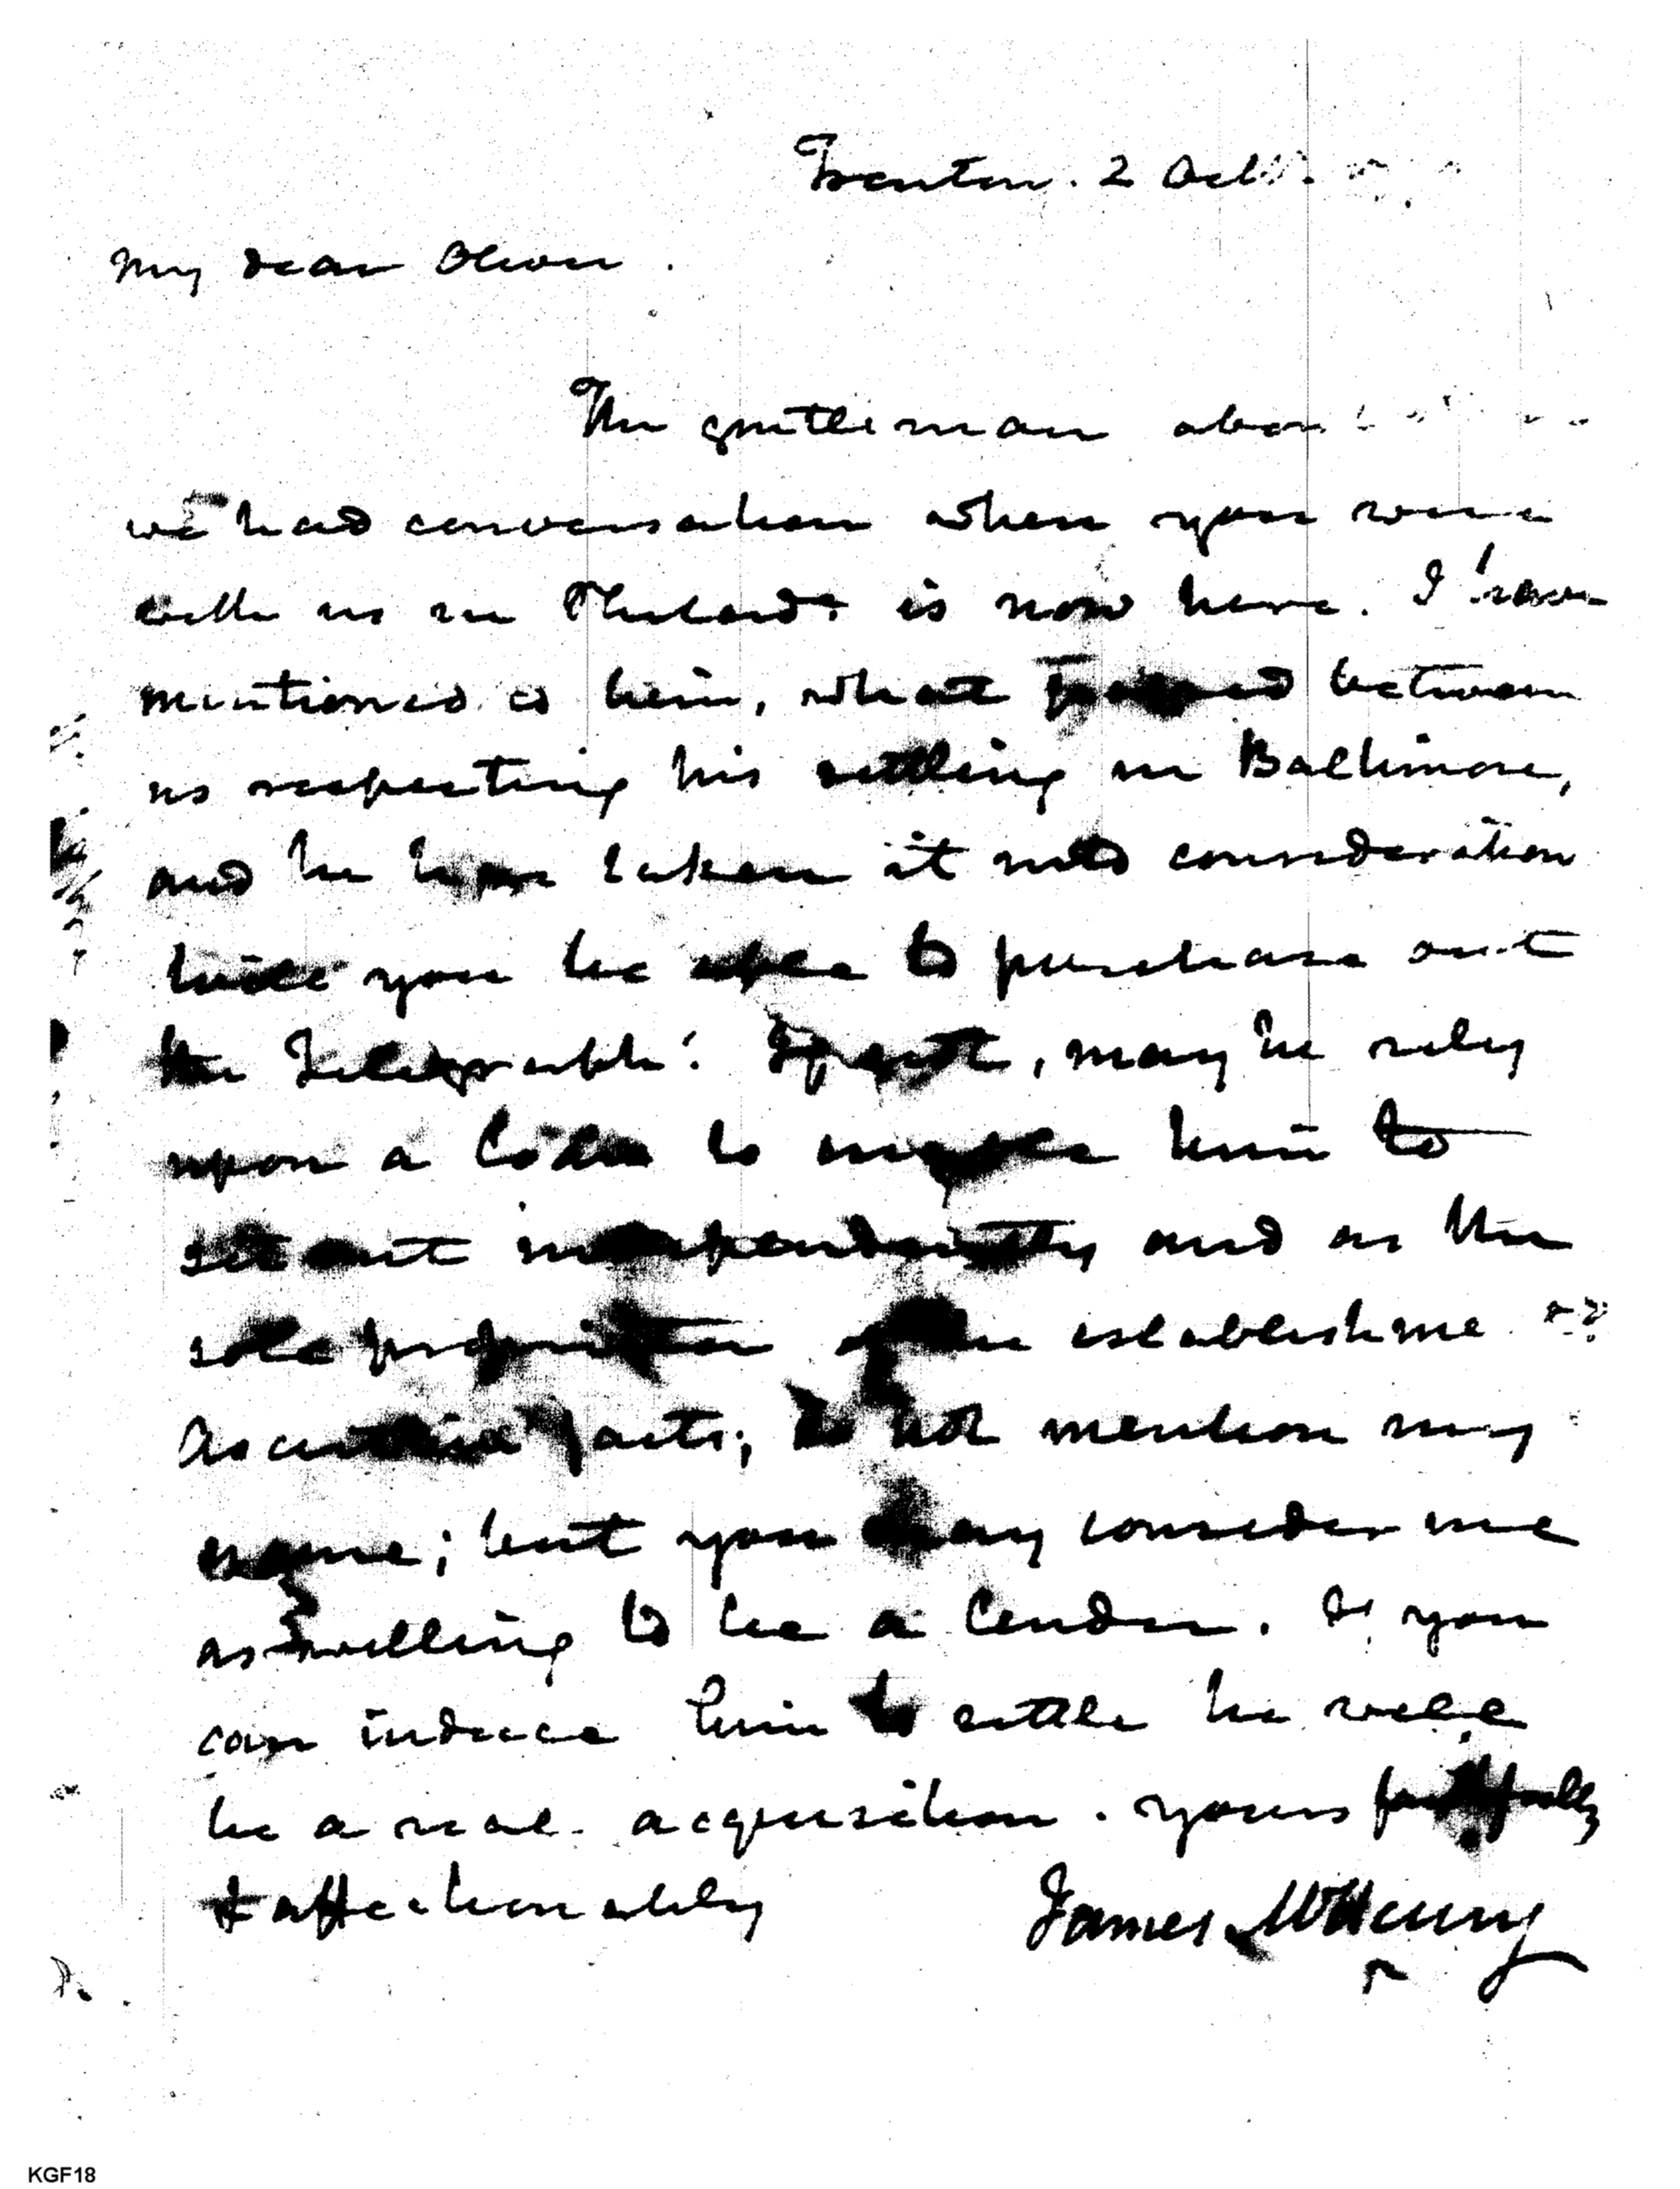 Trenton. 2 Octr.
My dear Oliver.
The gentleman about
we had conversation when you were
with us in Philada. is now here. I have
mentioned to him, what passed between
us respecting his settling in Baltimore,
and he has taken it into consideration
will you be able to purchase out
the Telegraph? If not, may he rely
upon a loan to enable him to
set out independently and as the
sole proprietor of an establishment?
Ascertain facts; do not mention my
name; but you may consider me
as willing to be a lender. If you
can induce him to settle he will
be a real acquisition. Yours faithfully
& affectionately James McHenry
KGF18